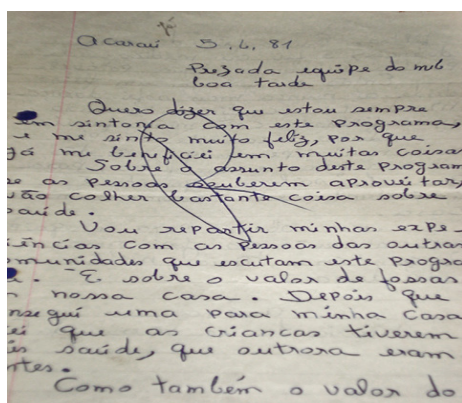 Acaraú 5.6.81
Prezada equipe do meb
boa tarde
Quero dizer que estou sempre
em sintonia com este programa,
e me sinto muito feliz, por que
já me beneficiei em muitas coisas
Sobre o assunto deste program
se as pessoas souberem aproveitar,
vão colher bastante coisa sobre
saúde.
Vou repartir minhas expe-
iências com as pessoas das outras
munidades que escutam este progra
E sobre o valor de fossas
nossa casa. Depois que
nsegui uma para minha casa
ei que as crianças tiverem
is saúde, que outrora eram
tes.
Como também o valor do